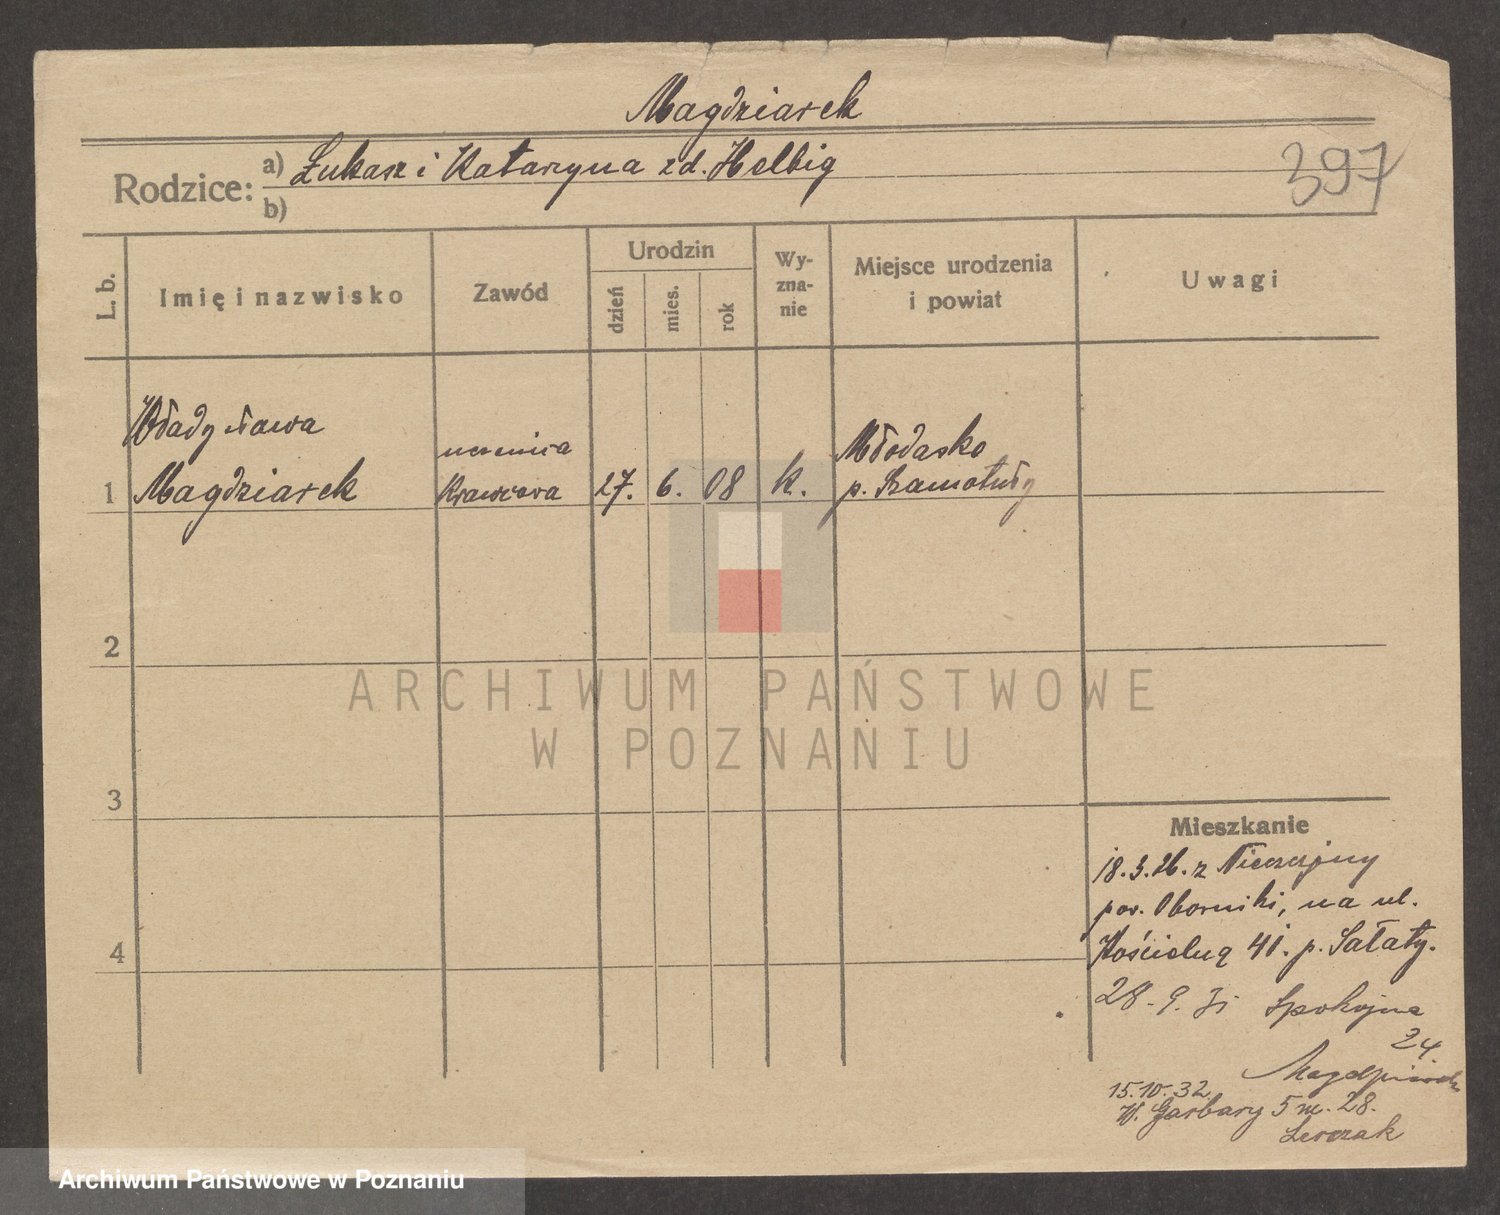 Magdziarek
397
Rodzice: a) Łukasz i Katarzyna zd. Helbig
b)
L. b.
Imię i nazwisko
Zawód
Urodzin
dzień
mies.
rok
Wy-
zna-
nie
Miejsce urodzenia
i powiat
Uwagi
Władysława
Magdziarek
uczenica
Krawcowa
1
27. 6. 08
k.
Młodasko
p. Szamotuły
2
3
4
Mieszkanie
18.3.26. z Nieczajny
pow. Oborniki, na ul.
Kościelną 41. p. Sałaty.
28.9.31 Spokojna
24.
Magdziarek
15.10.32
W. Garbary 5 m. 28.
Lerczak
ARCHIWUM PAŃSTWOWE
W POZNANIU
Archiwum Państwowe w Poznaniu